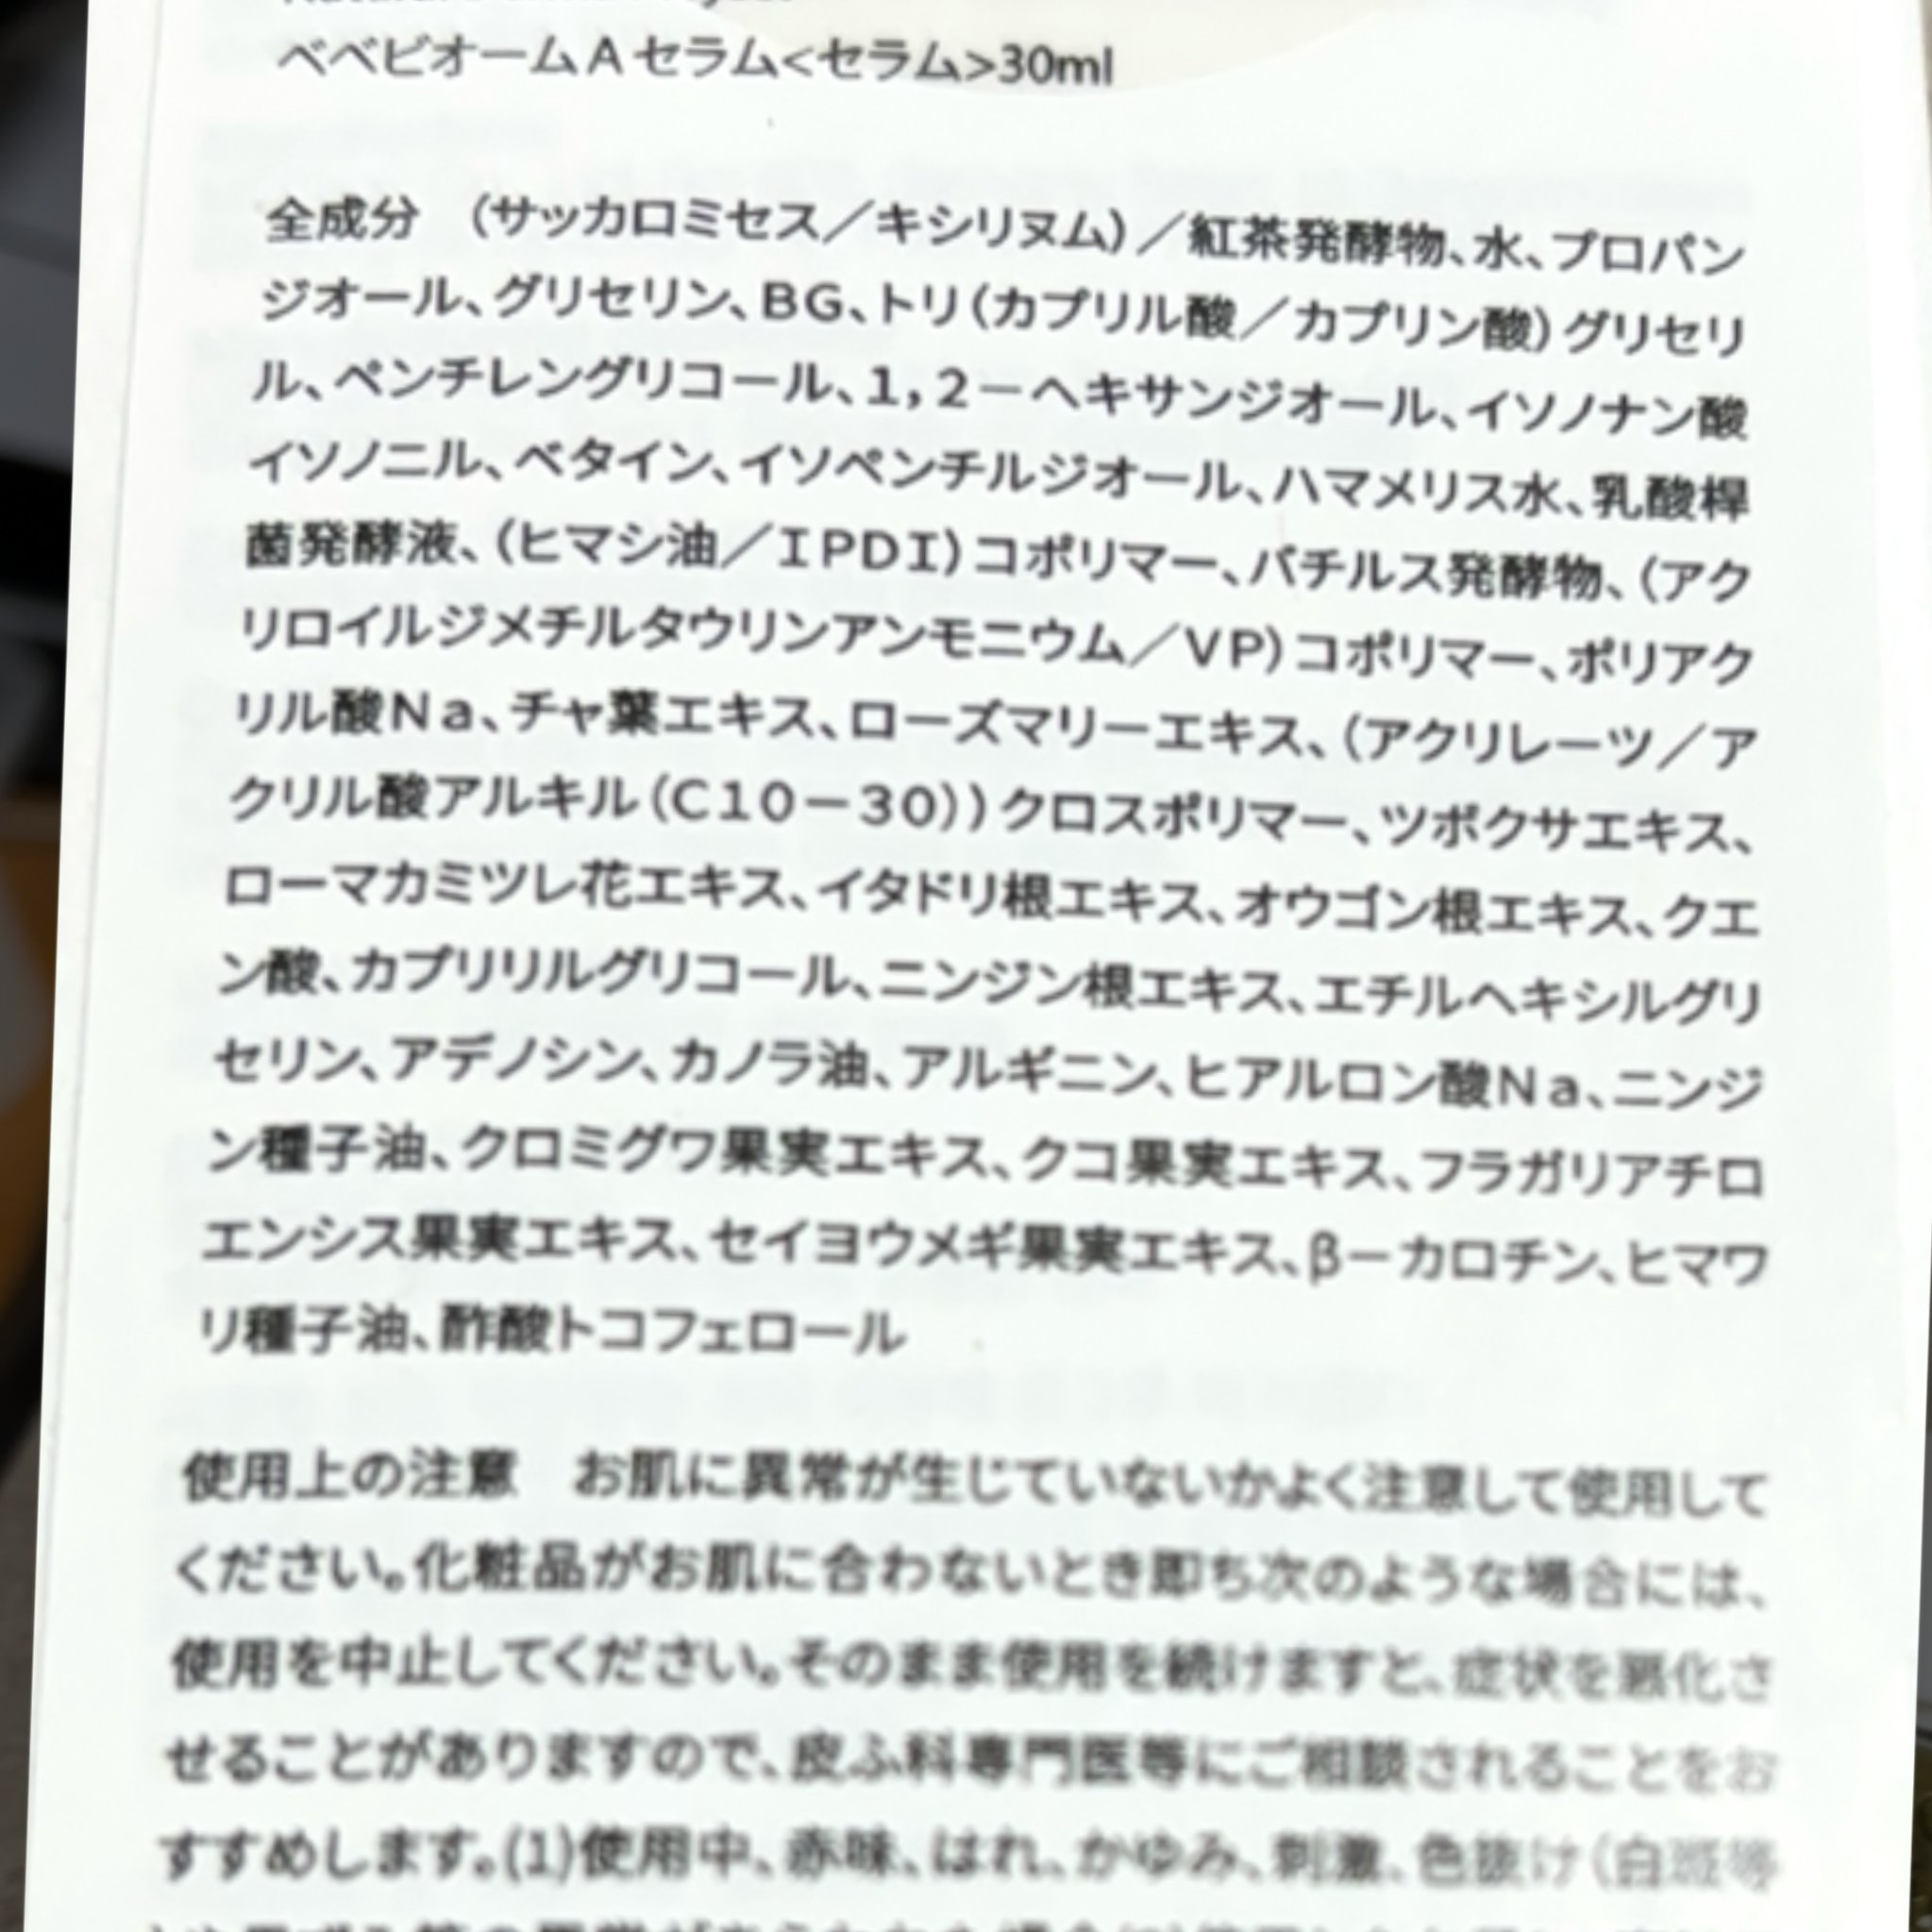 ベベビオームAセラム<セラム>30ml
全成分　（サッカロミセス／キシリヌム）／紅茶発酵物、水、プロパン
ジオール、グリセリン、BG、トリ（カプリル酸／カプリン酸）グリセリ
ル、ペンチレングリコール、1，2－ヘキサンジオール、イソノナン酸
イソノニル、ベタイン、イソペンチルジオール、ハマメリス水、乳酸桿
菌発酵液、（ヒマシ油／IPDI）コポリマー、バチルス発酵物、（アク
リロイルジメチルタウリンアンモニウム／VP）コポリマー、ポリアク
リル酸Na、チャ葉エキス、ローズマリーエキス、（アクリレーツ／ア
クリル酸アルキル（C10－30））クロスポリマー、ツボクサエキス、
ローマカミツレ花エキス、イタドリ根エキス、オウゴン根エキス、クエ
ン酸、カプリリルグリコール、ニンジン根エキス、エチルヘキシルグリ
セリン、アデノシン、カノラ油、アルギニン、ヒアルロン酸Na、ニンジ
ン種子油、クロミグワ果実エキス、クコ果実エキス、フラガリアチロ
エンシス果実エキス、セイヨウメギ果実エキス、β－カロチン、ヒマワ
リ種子油、酢酸トコフェロール
使用上の注意　お肌に異常が生じていないかよく注意して使用して
ください。化粧品がお肌に合わないとき即ち次のような場合には、
使用を中止してください。そのまま使用を続けますと、症状を悪化さ
せることがありますので、皮ふ科専門医等にご相談されることをお
すすめします。(1)使用中、赤味、はれ、かゆみ、刺激、色抜け（白斑等